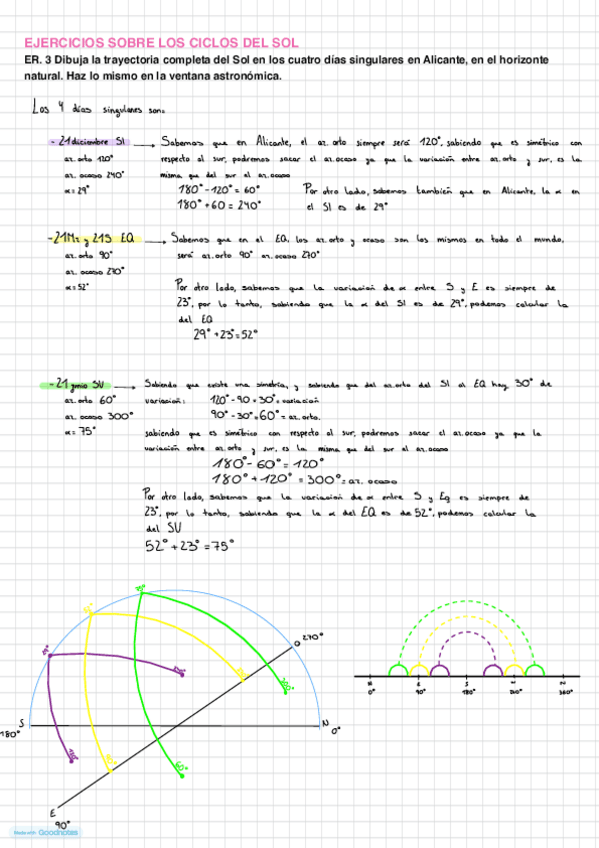 EJERCICIOS SOBRE LOS CICLOS DEL SOL
ER. 3 Dibuja la trayectoria completa del Sol en los cuatro días singulares en Alicante, en el horizonte
natural. Haz lo mismo en la ventana astronómica.
Los 4 días singulares son:
- 21 diciembre SI → Sabemos que en Alicante, el az. orto siempre será 120°, sabiendo que es simétrico con
az. orto 120° respecto al sur, podremos sacar el az.ocaso ya que la variación entre az.orto y sur, es la
az. ocaso 240° misma que del sur al az.ocaso
α = 29° 180° - 120° = 60° Por otro lado, sabemos también que en Alicante, la α en
180° + 60 = 240° el SI es de 29°
- 21Mz y 21S EQ → Sabemos que en el EQ, los az.orto y ocaso son los mismos en todo el mundo,
az. orto 90° será az.orto 90° az.ocaso 270°
az. ocaso 270°
α = 52° Por otro lado, sabemos que la variacion de α entre S y E es siempre de
23°, por lo tanto, sabiendo que la α del SI es de 29°, podemos calcular la
del EQ
29° + 23° = 52°
- 21 junio SV → Sabiendo que existe una simetría, y sabiendo que del az.orto del SI al EQ hay 30° de
az. orto 60° variacion: 120° - 90 = 30° = variacion
az. ocaso 300° 90° - 30° = 60° = az. orto.
α = 75° sabiendo que es simétrico con respecto al sur, podremos sacar el az.ocaso ya que la
variación entre az.orto y sur, es la misma que del sur al az.ocaso
180° - 60° = 120°
180° + 120° = 300° = az. ocaso
Por otro lado, sabemos que la variacion de α entre S y Eq es siempre de
23°, por lo tanto, sabiendo que la α del EQ es de 52°, podemos calcular la
del SV
52° + 23° = 75°
75°
52°
O 270°
S
180°
N
0°
300°
120°
60°
E
90°
0°
90°
180°
360°
Made with Goodnotes